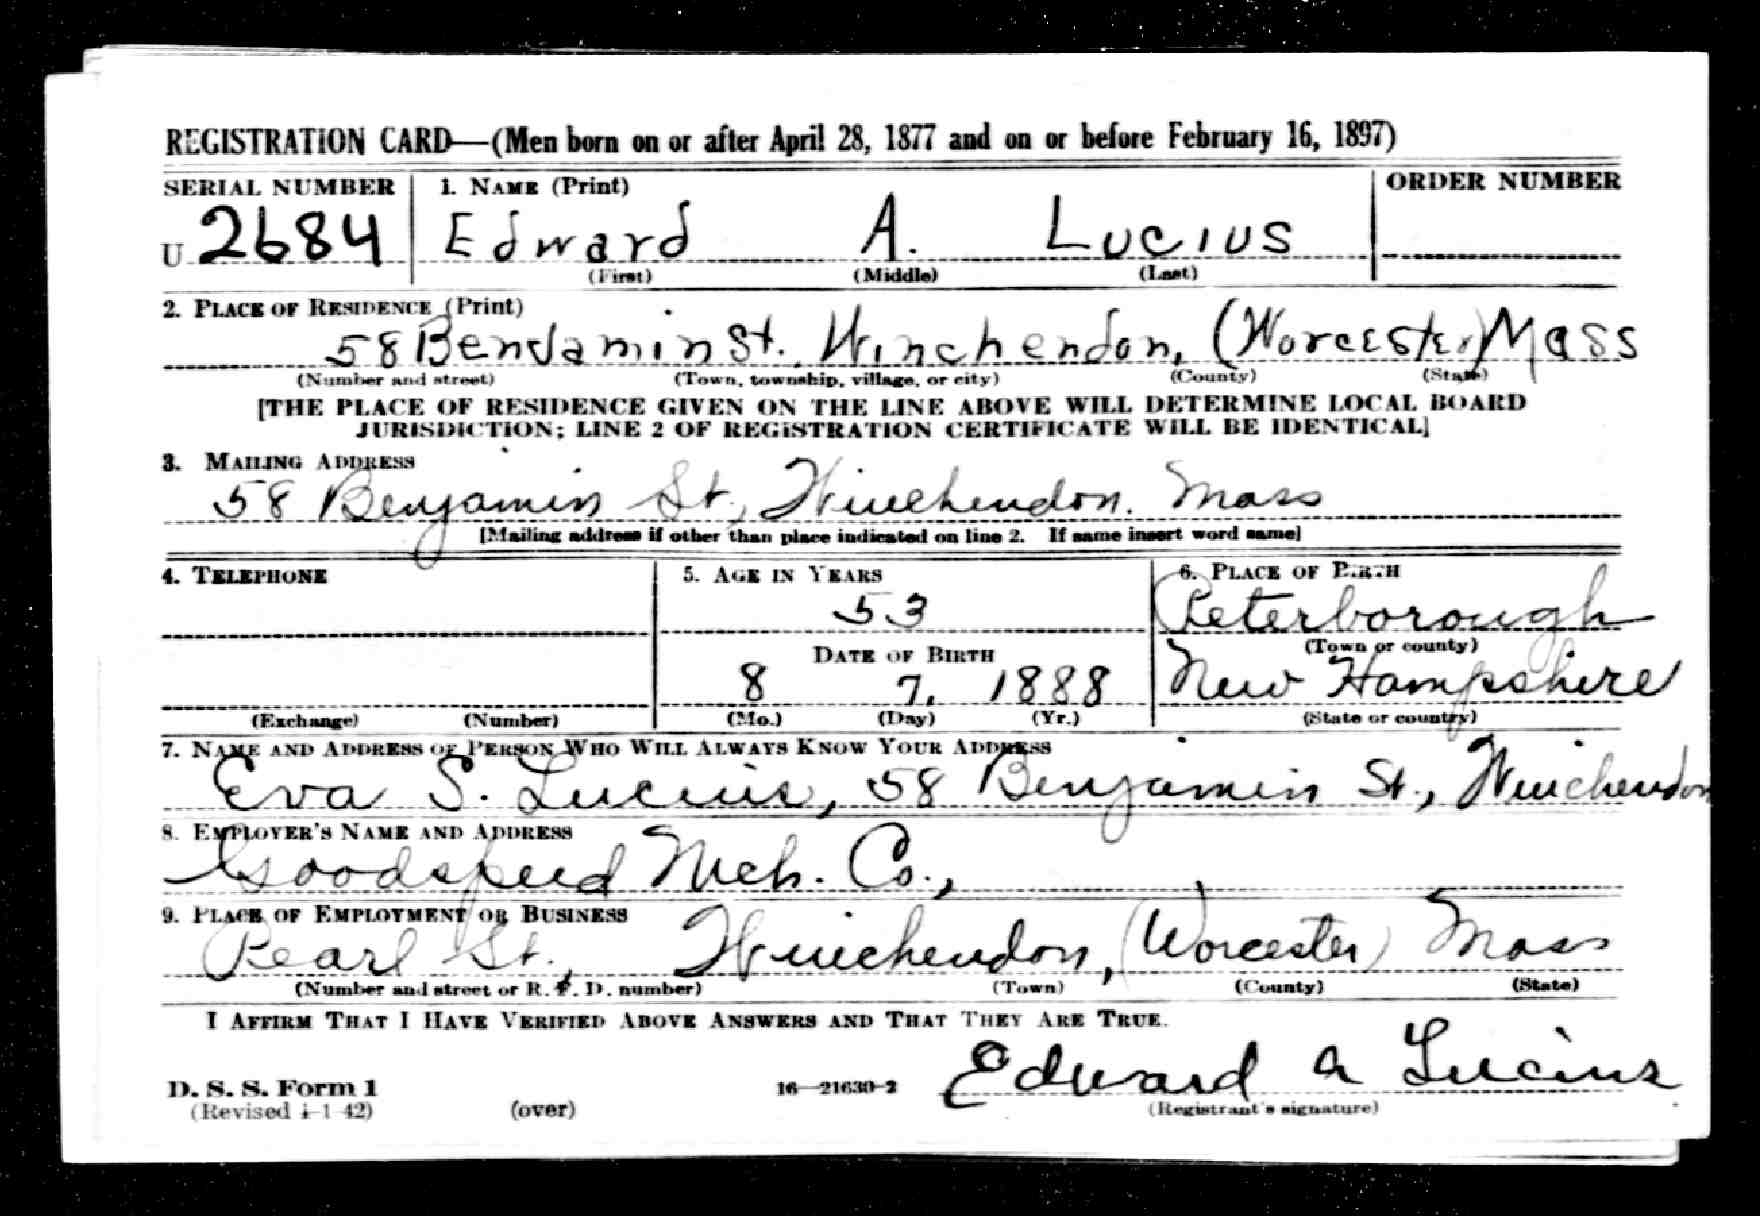 REGISTRATION CARD—(Men born on or after April 28, 1877 and on or before February 16, 1897)
SERIAL NUMBER 1. NAME (Print) ORDER NUMBER
U 2684 Edward A. Lucius
(First) (Middle) (Last)
2. PLACE OF RESIDENCE (Print)
58 Benjamin St. Winchendon, (Worcester) Mass
(Number and street) (Town, township, village, or city) (County) (State)
[THE PLACE OF RESIDENCE GIVEN ON THE LINE ABOVE WILL DETERMINE LOCAL BOARD
JURISDICTION; LINE 2 OF REGISTRATION CERTIFICATE WILL BE IDENTICAL]
3. MAILING ADDRESS
58 Benjamin St., Winchendon. Mass
[Mailing address if other than place indicated on line 2. If same insert word same]
4. TELEPHONE 5. AGE IN YEARS 6. PLACE OF BIRTH
53 Peterborough
DATE OF BIRTH (Town or county)
8 7, 1888 New Hampshire
(Exchange) (Number) (Mo.) (Day) (Yr.) (State or country)
7. NAME AND ADDRESS OF PERSON WHO WILL ALWAYS KNOW YOUR ADDRESS
Eva S. Lucius, 58 Benjamin St., Winchendon
8. EMPLOYER'S NAME AND ADDRESS
Goodspeed Mch. Co.,
9. PLACE OF EMPLOYMENT OR BUSINESS
Pearl St., Winchendon, (Worcester) Mass
(Number and street or R. F. D. number) (Town) (County) (State)
I AFFIRM THAT I HAVE VERIFIED ABOVE ANSWERS AND THAT THEY ARE TRUE.
Edward A Lucius
D. S. S. Form 1 16—21630-2
(Revised 4-1-42) (over) (Registrant's signature)